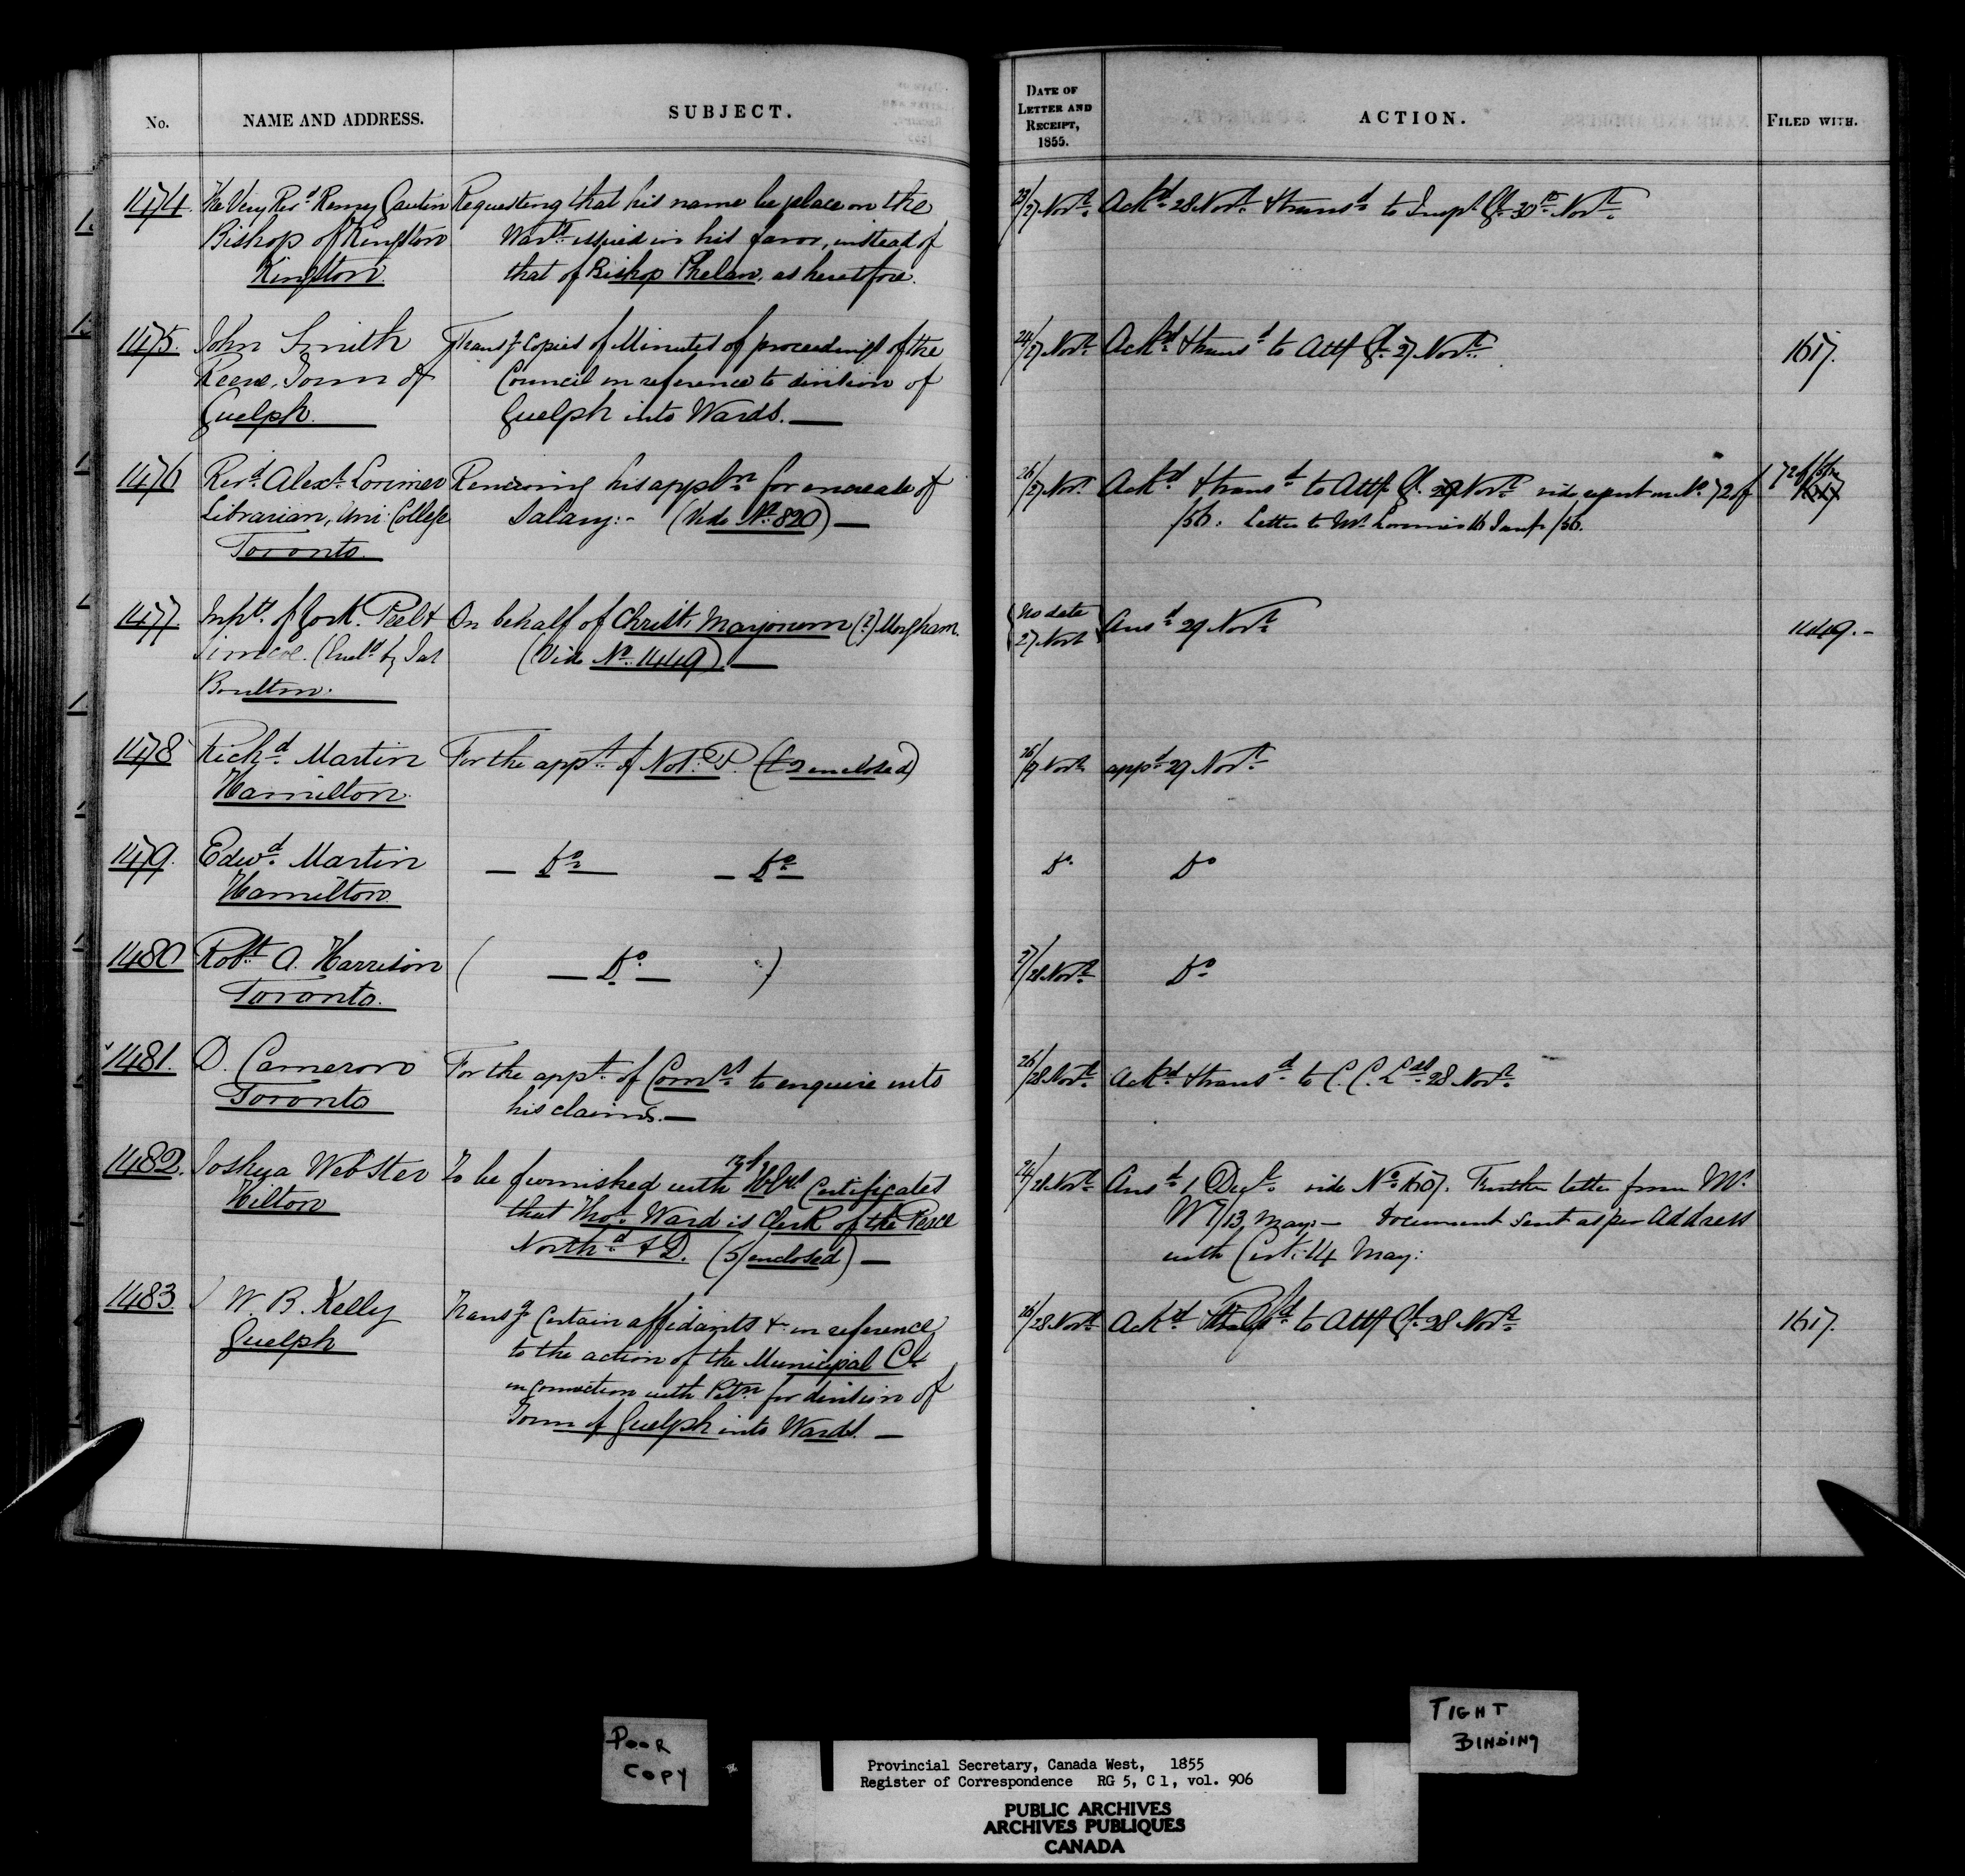 No.
NAME AND ADDRESS.
SUBJECT.
DATE OF
LETTER AND
RECEIPT,
1855.
ACTION.
FILED WITH.
1474. The Very Revd Remey Gaulin
Bishop of Kingston
Kingston.
Requesting that his name be place on the
Warts issued in his favor, instead of
that of Bishop Phelan, as heretofore.
23/27 Novr.
Ackd 28 Novr. & transd to Inspr Gl. 30th Novr.
1475. John Smith
Reeve, Town of
Guelph.
Transg Copies of Minutes of proceedings of the
Council in reference to division of
Guelph into Wards.—
24/27 Novr.
Ackd & transd to Atty Gl. 27 Novr.
1617.
1476 Revd. Alexr. Lorimer
Librarian, Uni: College
Toronto.
Renewing his appln for increase of
Salary:- (Vide No. 820)—
26/27 Novr.
Ackd & transd to Atty Gl. 29 Novr vide report on No. 72 of
/56. Letter to Mr Lorimer 16 Jany /56.
72 of /56
1477. Inhts. of York, Peel &
Simcoe. (Encld by Jas
Boulton.
On behalf of Christr. Marjorum (?) Mugham.
(Vide No. 1449)—
No date
27 Novr
Ansd 29 Novr.
1449.-
1478 Richd. Martin
Hamilton.
For the appt. of Not: P. (£2 enclosed)
26/27 Novr
appd 29 Novr.
1479. Edwd. Martin
Hamilton.
— Do — — Do —
Do.
Do
1480 Robt. A. Harrison
Toronto.
( — Do — )
27/28 Novr.
Do
1481. D. Cameron
Toronto
For the appt. of Comrs. to enquire into
his claims.—
26/28 Novr.
Ackd & transd. to C. C. Lds 28 Novr.
1482. Joshua Webster
Hilton
To be furnished with Certificates
that Thos. Ward is Clerk of the Peace
Northd & D. (5/ enclosed)—
24/28 Novr.
Ansd. 1 Decr. vide No. 1507. Further letter from Mr.
W 7/13 May:— Document sent as per Address
with Cert: 14 May:
1483. W. B. Kelly
Guelph
Transg Certain affidavits &c in reference
to the action of the Municipal Cl.
in connection with Petn for division of
Town of Guelph into Wards.—
26/28 Novr.
Ackd & Refd to Atty Gl. 28 Novr.
1617.
POOR
COPY
TIGHT
BINDING
Provincial Secretary, Canada West, 1855
Register of Correspondence RG 5, C 1, vol. 906
PUBLIC ARCHIVES
ARCHIVES PUBLIQUES
CANADA